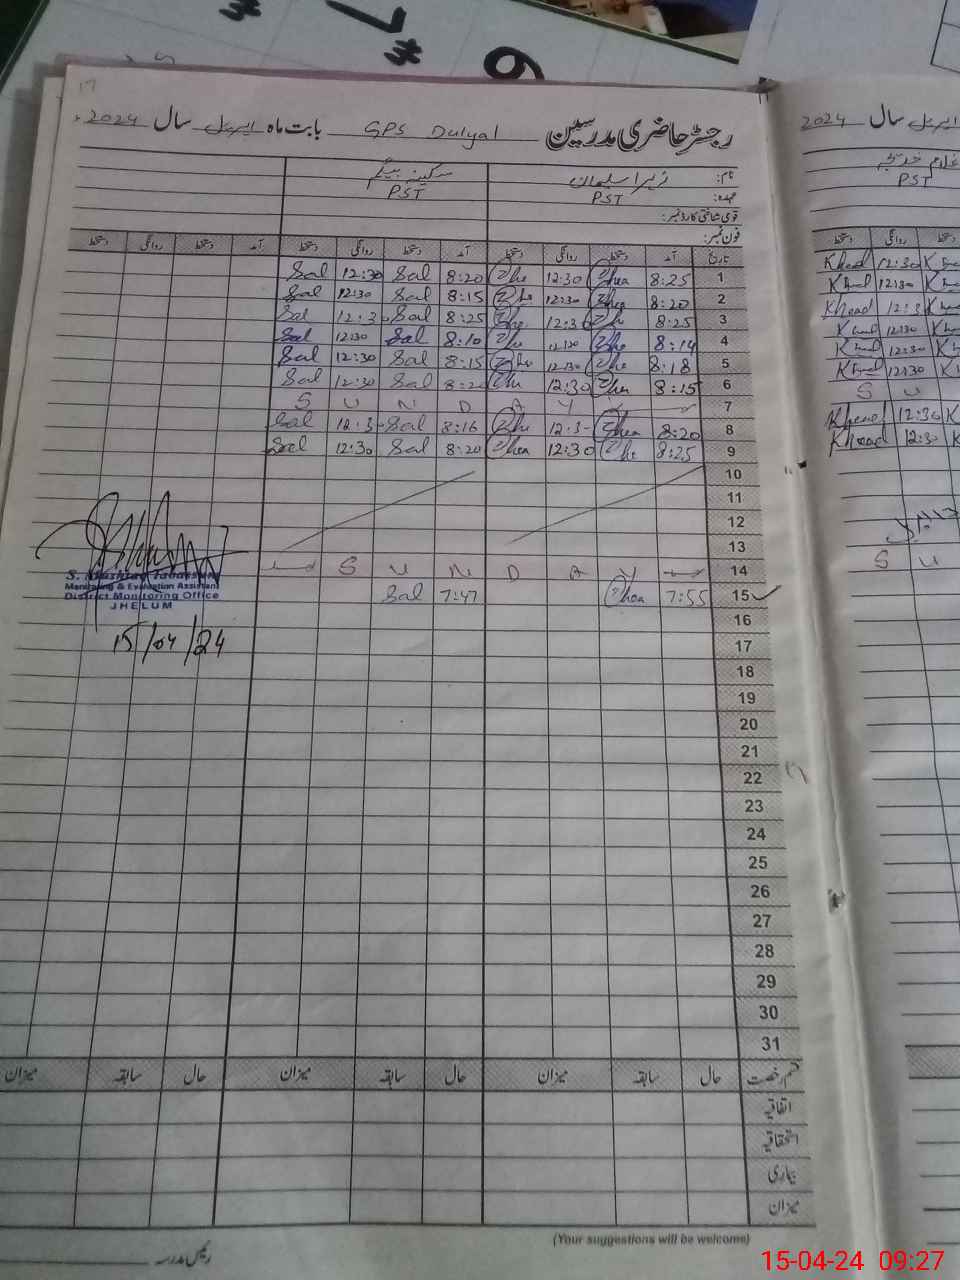 رجسٹر حاضری مدرسین GPS Dulyal بابت ماہ اپریل سال 2024ء
نام: زہرا سلیمان سکینہ بیگم
عہدہ: PST PST
قومی شناختی کارڈ نمبر:
فون نمبر:
تاریخ آمد دستخط روانگی دستخط آمد دستخط روانگی دستخط آمد دستخط روانگی دستخط
1 8:25 12:30 8:20 Sal 12:30 Sal
2 8:20 12:30 8:15 Sal 12:30 Sal
3 8:25 12:30 8:25 Sal 12:30 Sal
4 8:14 12:30 8:10 Sal 12:30 Sal
5 8:18 12:30 8:15 Sal 12:30 Sal
6 8:15 12:30 8:20 Sal 12:30 Sal
7 S U N D A Y
8 8:20 12:3- 8:16 Sal 12:3- Sal
9 8:25 12:30 8:20 Sal 12:30 Sal
10
11
12
13
14 S U N D A Y
15 7:55 7:47 Sal
16
17
18
19
20
21
22
23
24
25
26
27
28
29
30
31
S. Mushtaq Tabassum
Monitoring & Evaluation Assistant
District Monitoring Office
JHELUM
15/04/24
قسم رخصت حال سابقہ میزان حال سابقہ میزان حال سابقہ میزان
اتفاقیہ
استحقاقیہ
بیماری
میزان
(Your suggestions will be welcome)
رئیس مدرسہ
سال اپریل 2024
غلام خدیجہ
PST
دستخط روانگی دستخط
Khead 12:30
Khead 12:30
Khead 12:3
12:30
12:30
12:30
S U
Khead 12:30
Khead 12:30
S U
15-04-24 09:27